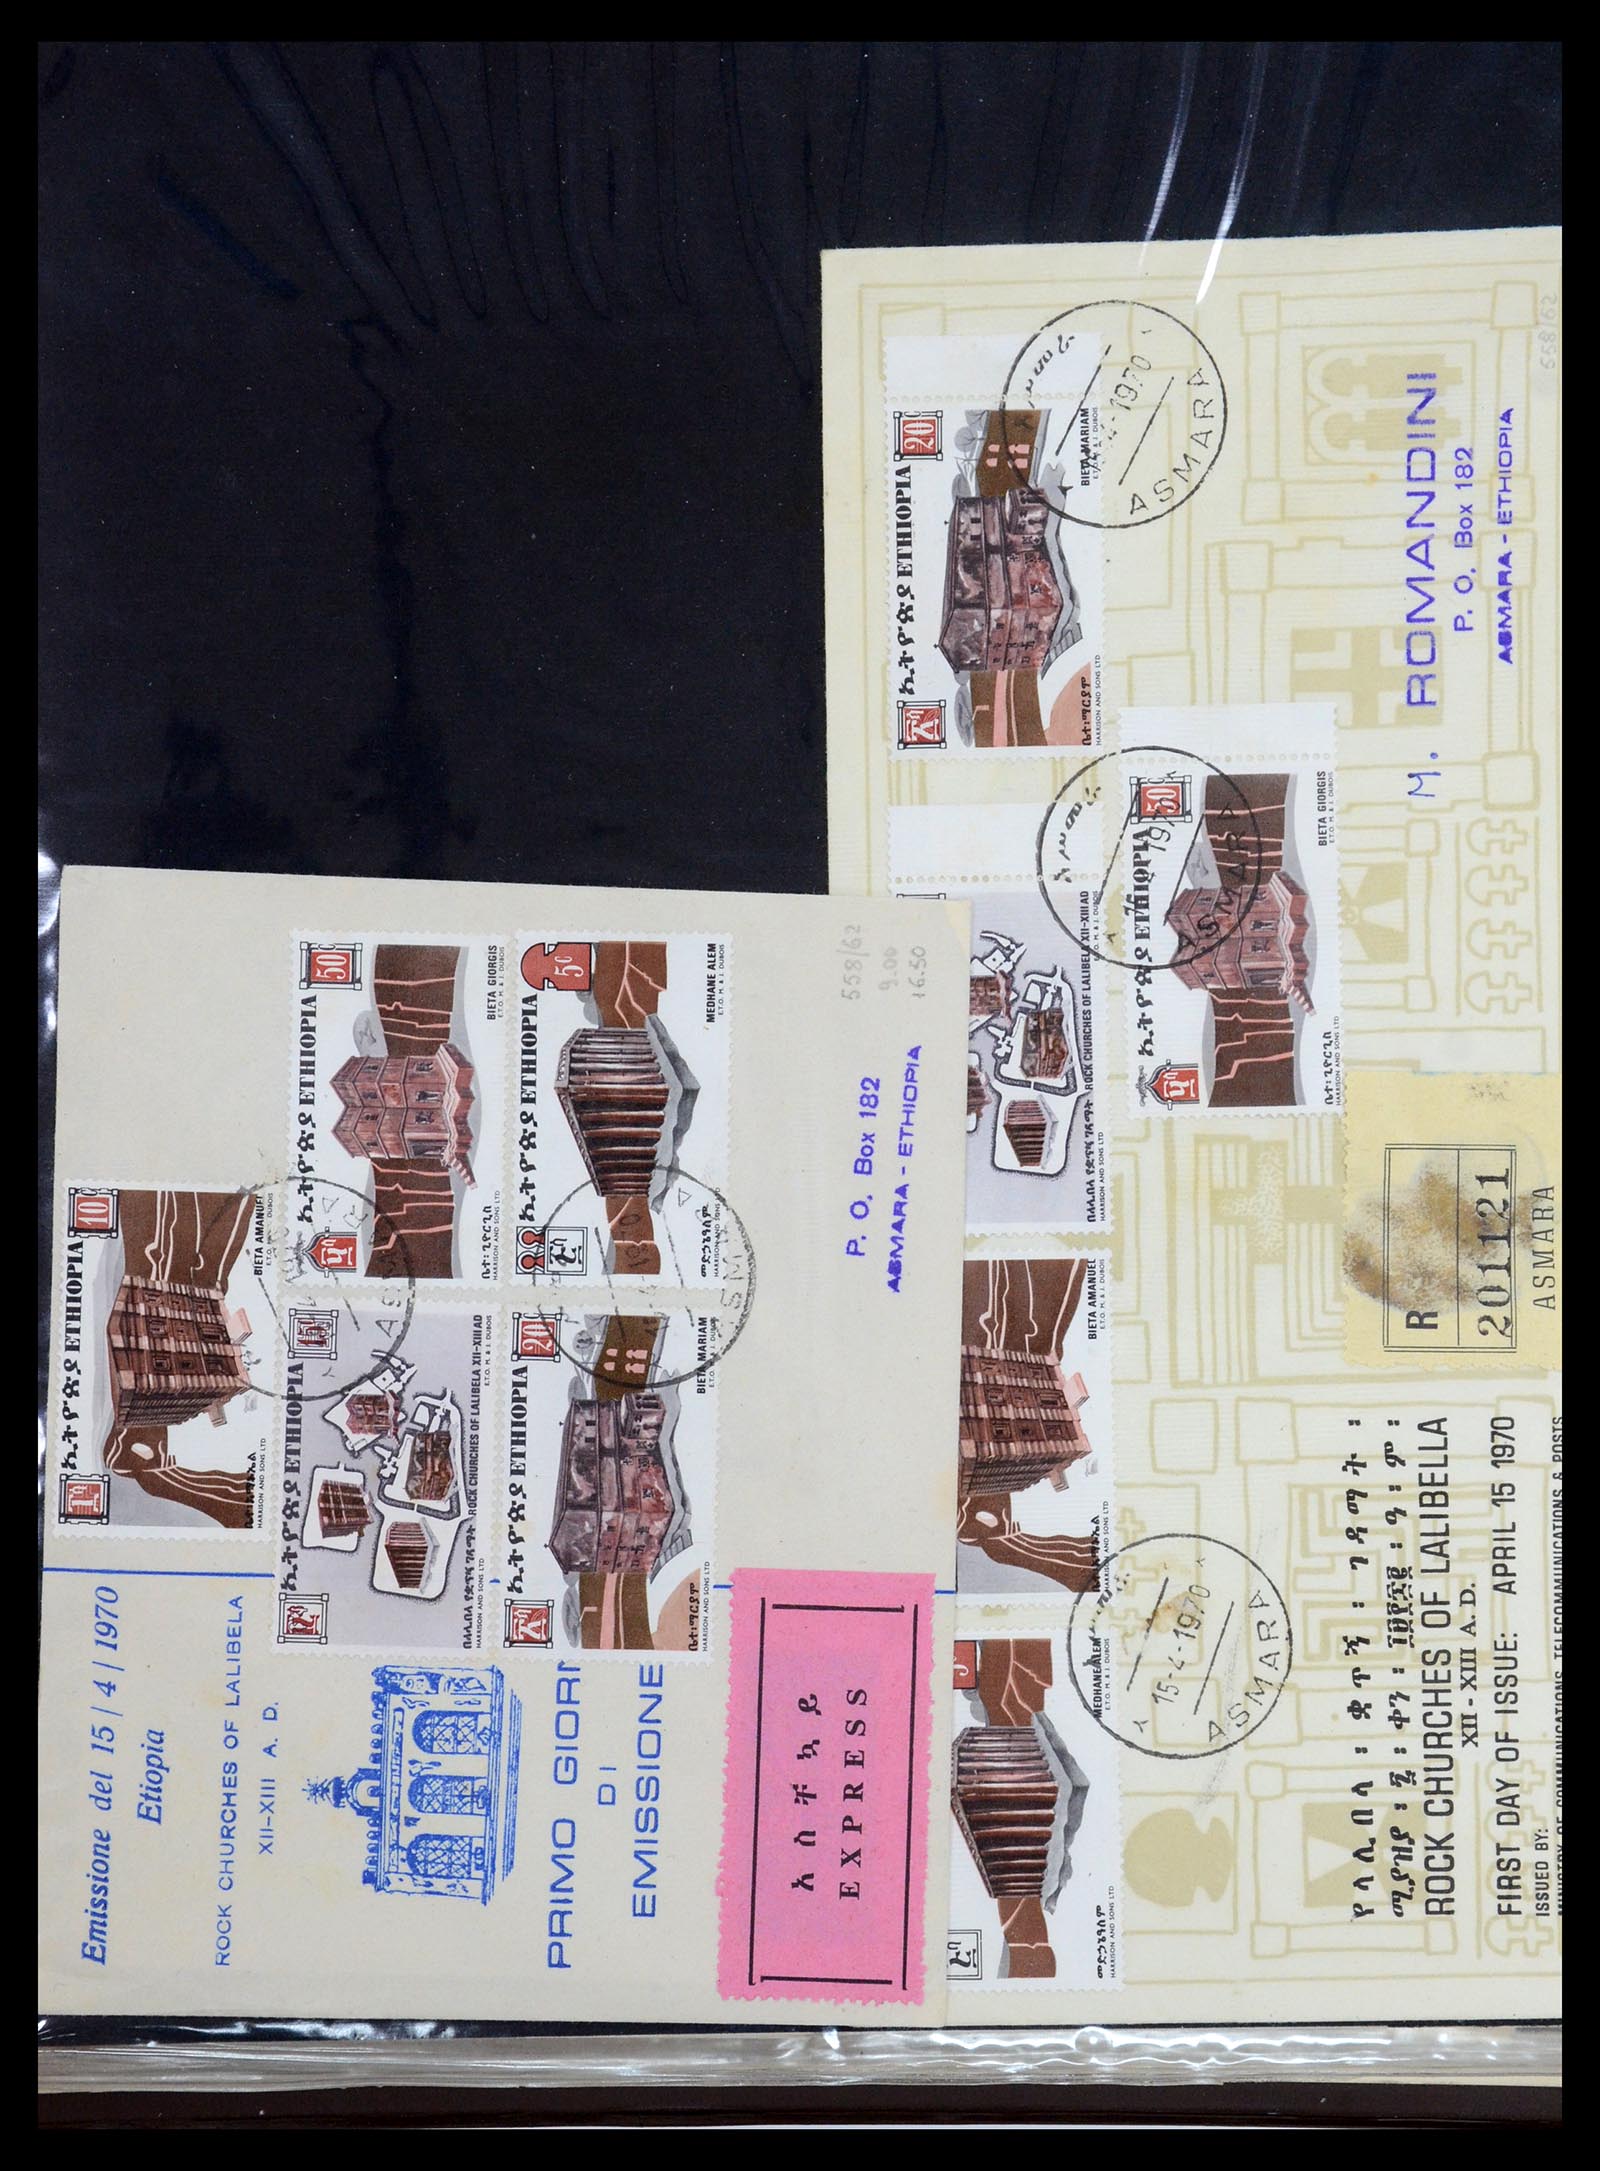 Emissione del 15/4/1970
Etiopia
ROCK CHURCHES OF LALIBELA
XII-XIII A. D.
PRIMO GIORN
DI
EMISSIONE
ኢትዮጵያ ETHIOPIA
10c
BIETA AMANUEL
HARRISON AND SONS LTD
ኢትዮጵያ ETHIOPIA
50c
BIETA GIORGIS
E.T.O. M. & J. DUBOIS
ቤተ፡ጊዮርጊስ
HARRISON AND SONS LTD
ኢትዮጵያ ETHIOPIA
5c
MEDHANE ALEM
E.T.O. M. & J. DUBOIS
መድኃኔዓለም
HARRISON AND SONS LTD
ኢትዮጵያ ETHIOPIA
15c
ROCK CHURCHES OF LALIBELA XII-XIII AD
E.T.O. M. & J. DUBOIS
HARRISON AND SONS LTD
ኢትዮጵያ ETHIOPIA
20c
BIETA MARIAM
E.T.O. M. & J. DUBOIS
ቤተ፡ማርያም
HARRISON AND SONS LTD
558/62
9.00
16.50
P. O. Box 182
ASMARA - ETHIOPIA
አስቸኳይ
EXPRESS
ኢትዮጵያ ETHIOPIA
20c
BIETA MARIAM
E.T.O. M. & J. DUBOIS
ቤተ፡ማርያም
HARRISON AND SONS LTD
አሥመራ
1970
ASMARA
ROCK CHURCHES OF LALIBELA XII-XIII AD
HARRISON AND SONS LTD
ኢትዮጵያ ETHIOPIA
50c
BIETA GIORGIS
E.T.O. M. & J. DUBOIS
ቤተ፡ጊዮርጊስ
HARRISON AND SONS LTD
አሥመራ
1970
ASMARA
BIETA AMANUEL
E.T.O. M. & J. DUBOIS
HARRISON AND SONS LTD
MEDHANE ALEM
E.T.O. M. & J. DUBOIS
መድኃኔዓለም
HARRISON AND SONS LTD
15-4-1970
ASMARA
558/62
M. ROMANDINI
P. O. Box 182
ASMARA - ETHIOPIA
R
201121
ASMARA
የላሊበላ፡ቋዋኛ፡ገዳማት፡
ROCK CHURCHES OF LALIBELLA
XII - XIII A. D.
FIRST DAY OF ISSUE: APRIL 15 1970
ISSUED BY:
MINISTRY OF COMMUNICATIONS, TELECOMMUNICATIONS & POSTS